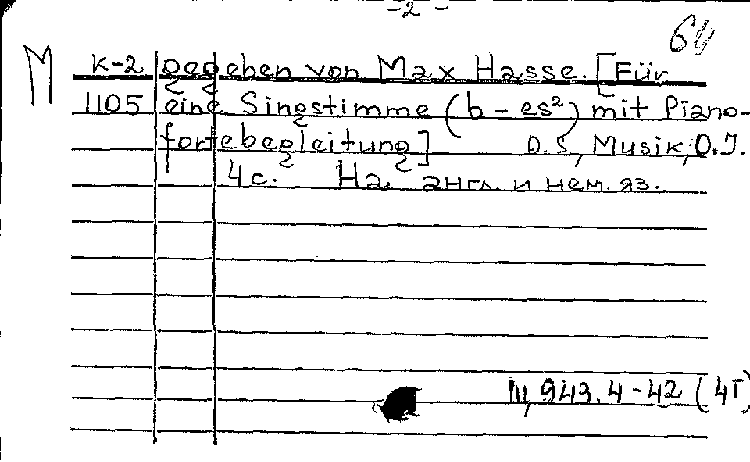 -2-
64
M
К-2 gegeben von Max Hasse. [Für
1105 eine Singstimme (b - es²) mit Piano-
fortebegleitung] D.S, Musik, O.J.
4с. На англ. и нем. яз.
Ш, 943. 4-42 (4Г)